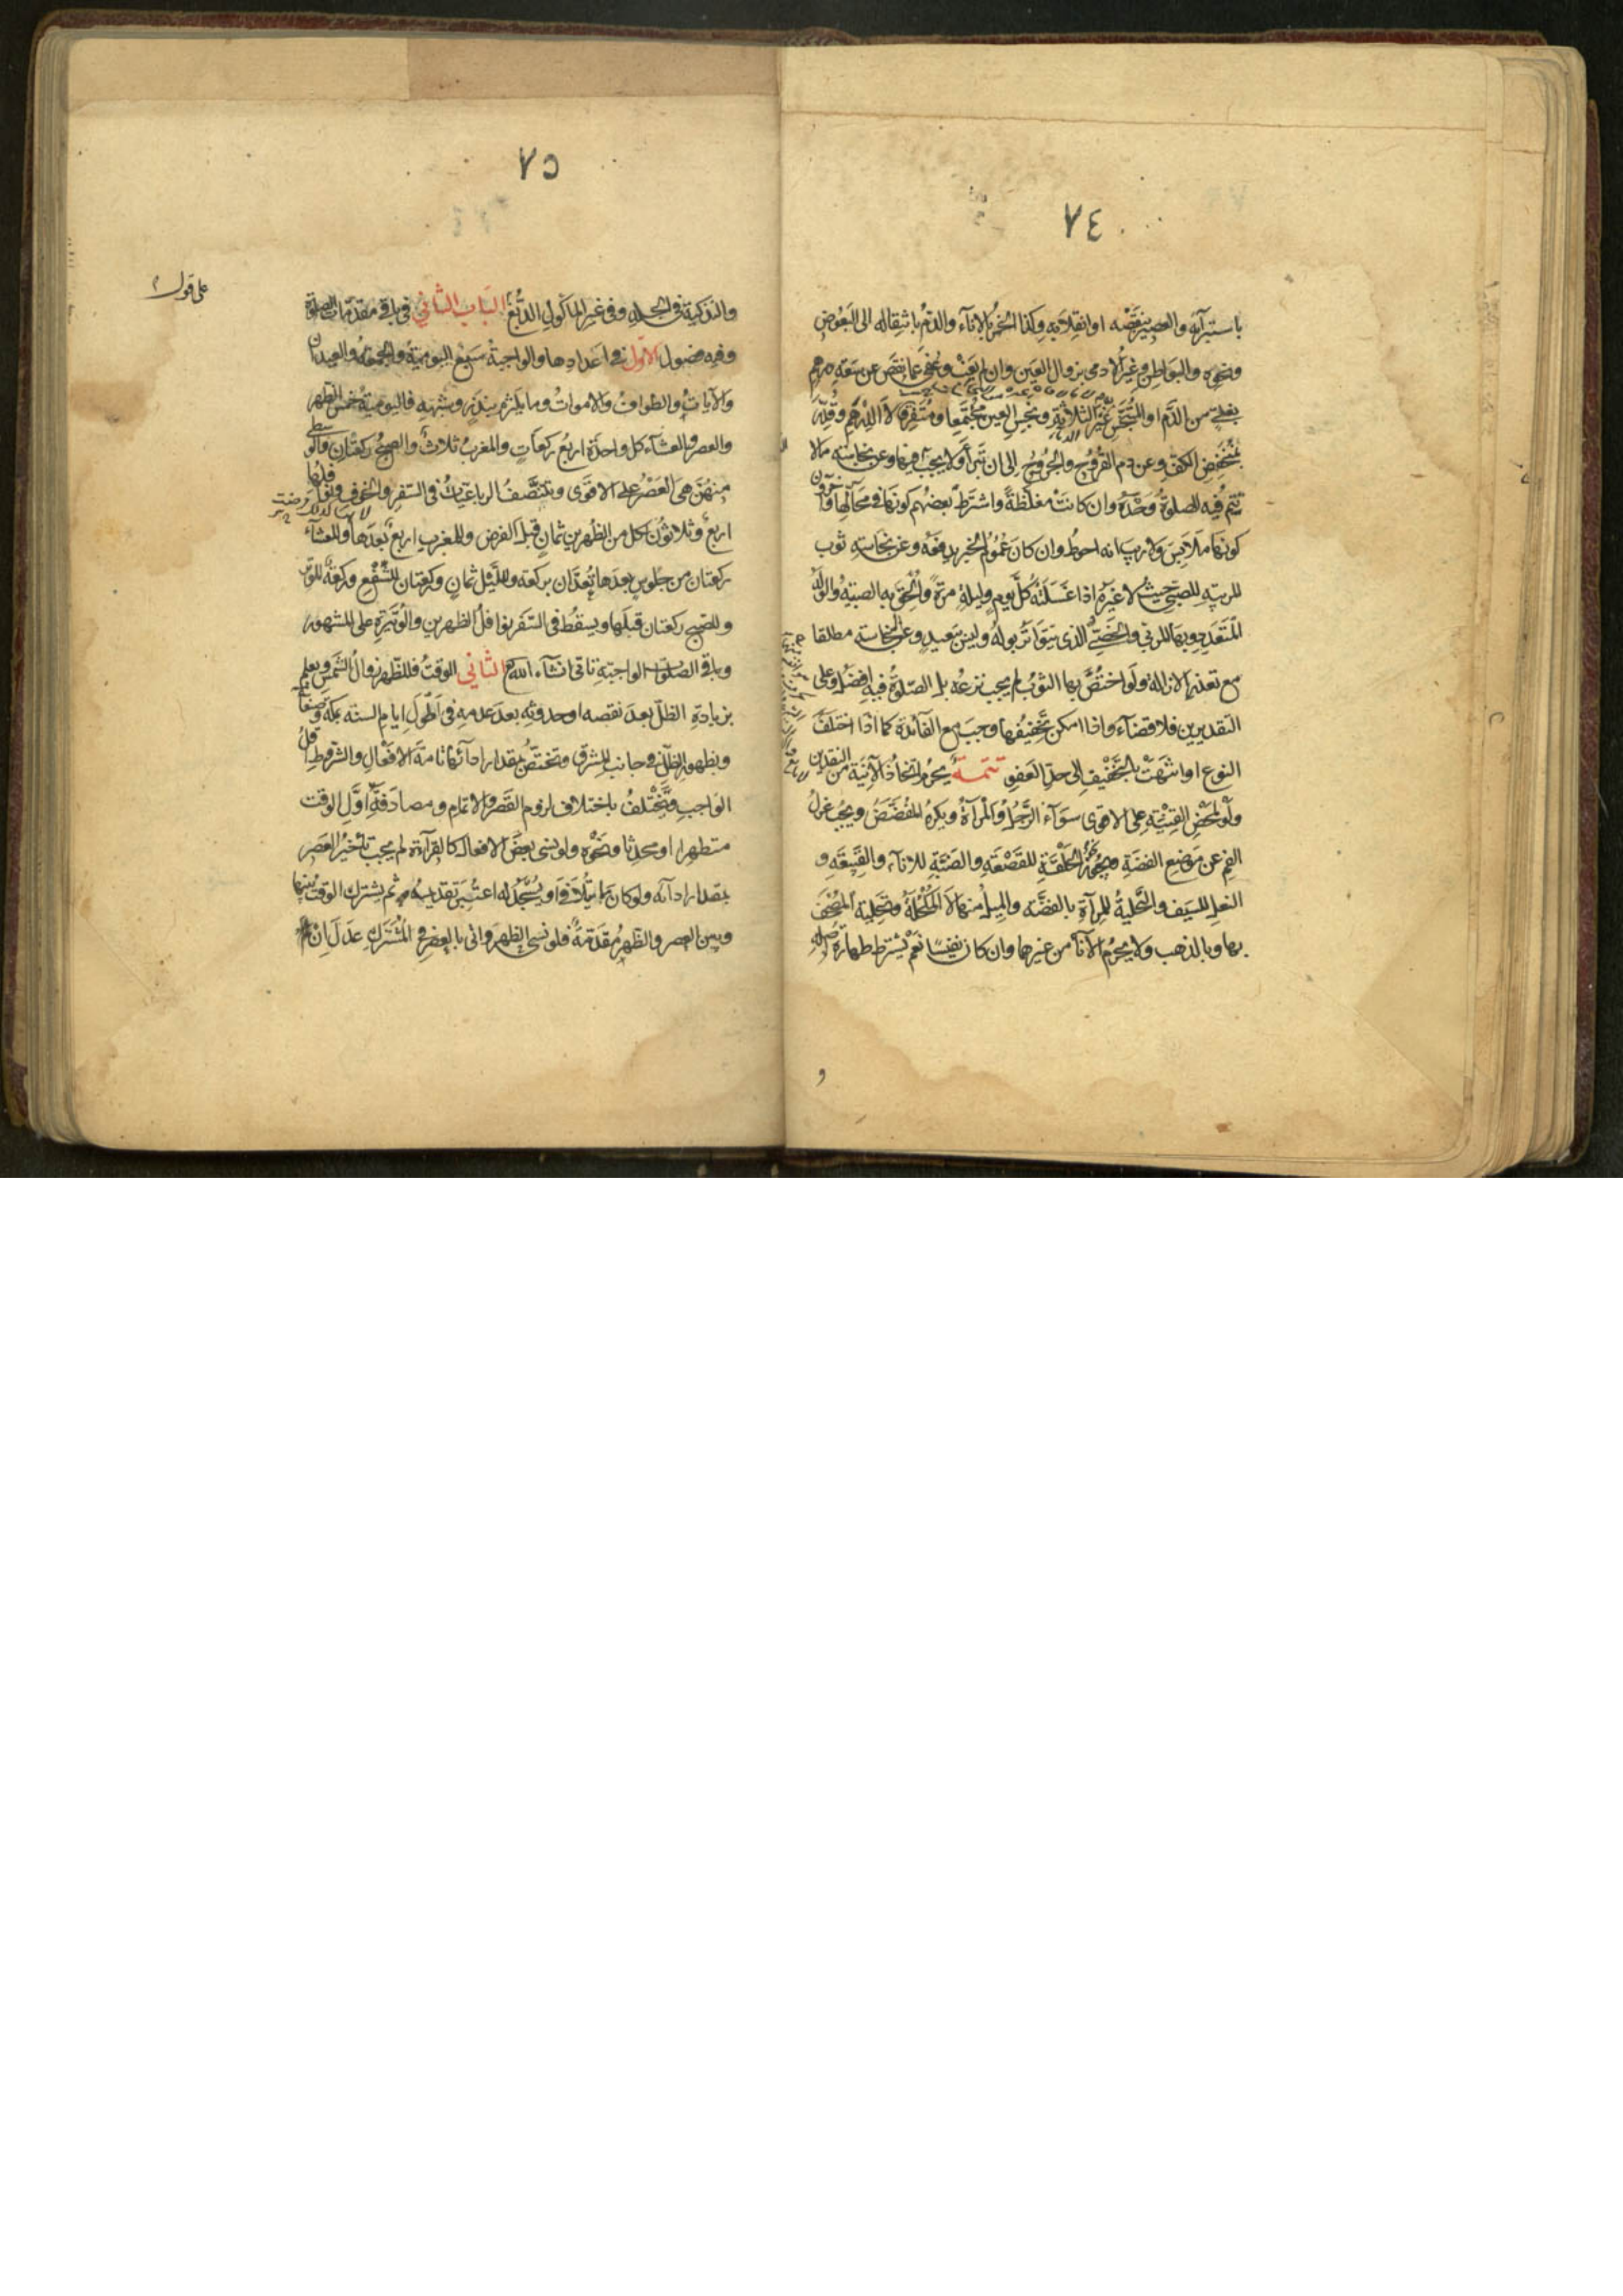 ٧٤
باستبرآئه والعصير بنقصه او انقلابه وكذا الخمر بالاناء والدم بانتقاله الى البعوض
ونحوه والبواطن وغير الادمى بزوال العين وان لم يغب وعفى عما نقص عن سعة درهم
بغلى من الدم او المتنجس غير الثلاثة ونجس العين مجتمعا ومتفرقا لا اللدرهم وقدر
بمنخفض الكف وعن دم القروح والجروح الى ان تبرأ ولا يجب وعن نجاسته ما لا
تتم فيه الصلوة وحده وان كانت مغلظة واشترط بعضهم كونها فى محالها
كونها ملابس ولا ريب انه احوط وان كان عموم الخبر يدفعه وعن نجاسة ثوب
المربية للصبى حيث لا غيره اذا غسلته كل يوم وليلة مرة والحق به الصبية والولد
المتعدد وبها المربى والخصى الذى يتواتر بوله وليس ببعيد وعن النجاسة مطلقا
مع تعذر الازالة ولو اختص بها الثوب لم يجب نزعه بل الصلوة فيه افضل وعلى
التقديرين فلا قضآء واذا امكن تخفيفها وجب مع الفائدة كما اذا اختلف
النوع او انتهت بالتخفيف الى حد العفو تتمة يحرم اتخاذ الآنية من النقدين
ولو لمحض القنية على الاقوى سوآء الرجل والمرأة ويكره المفضض ويجب عزل
الفم عن موضع الفضة ويجوز الحلقة للقصعة والضبة للاناء والقبيعة و
النعل للسيف والتحلية للمرآة بالفضة والميل منها لا المكحلة وتحلية المصحف
بها وبالذهب ولا يحرم الاناء من غيرها وان كان نفيسا نعم يشترط طهارة اصله
و
٧٥
والتذكية فى الجلد وفى غير المأكول الدبغ الباب الثانى فى باقى مقدمات الصلوة
على قول
وفيه فصول الاول فى اعدادها والواجبة سبع اليومية والجمعة والعيدان
والآيات والطواف والاموات وما يلتزم بنذر وشبهه فاليومية خمس الظهر
والعصر والعشاء كل واحدة اربع ركعات والمغرب ثلاث والصبح ركعتان والوسطى
منهن هى العصر على الاقوى وتنتصف الرباعيات فى السفر والخوف ونوافلها
اربع وثلاثون لكل من الظهرين ثمان قبل الفرض وللمغرب اربع بعدها وللعشاء
ركعتان من جلوس بعدها تعدان بركعة ولليل ثمان وركعتان للشفع وركعة للوتر
وللصبح ركعتان قبلها ويسقط فى السفر نوافل الظهرين والوتيرة على المشهور
وباقى الصلوات الواجبة تاتى انشاء الله الثانى الوقت فللظهر زوال الشمس ويعلم
بزيادة الظل بعد نقصه او حدوثه بعد عدمه فى اطول ايام السنة بمكة وصنعا
وبظهور الظل فى جانب المشرق وتختص بمقدار ادآئها تامة الافعال والشروط اقل
الواجب ويختلف باختلاف لزوم القصر والاتمام ومصادفة اول الوقت
متطهرا او محدثا ونحوه ولو نسى بعض الافعال كالقرآءة لم يجب تاخير العصر
بمقدار ادآئه ولو كان مما يتلافى او يسجد له اعتبر تقديمه ثم يشترك الوقت بينها
وبين العصر والظهر مقدمة فلو نسى الظهر واتى بالعصر فى المشترك عدل ان